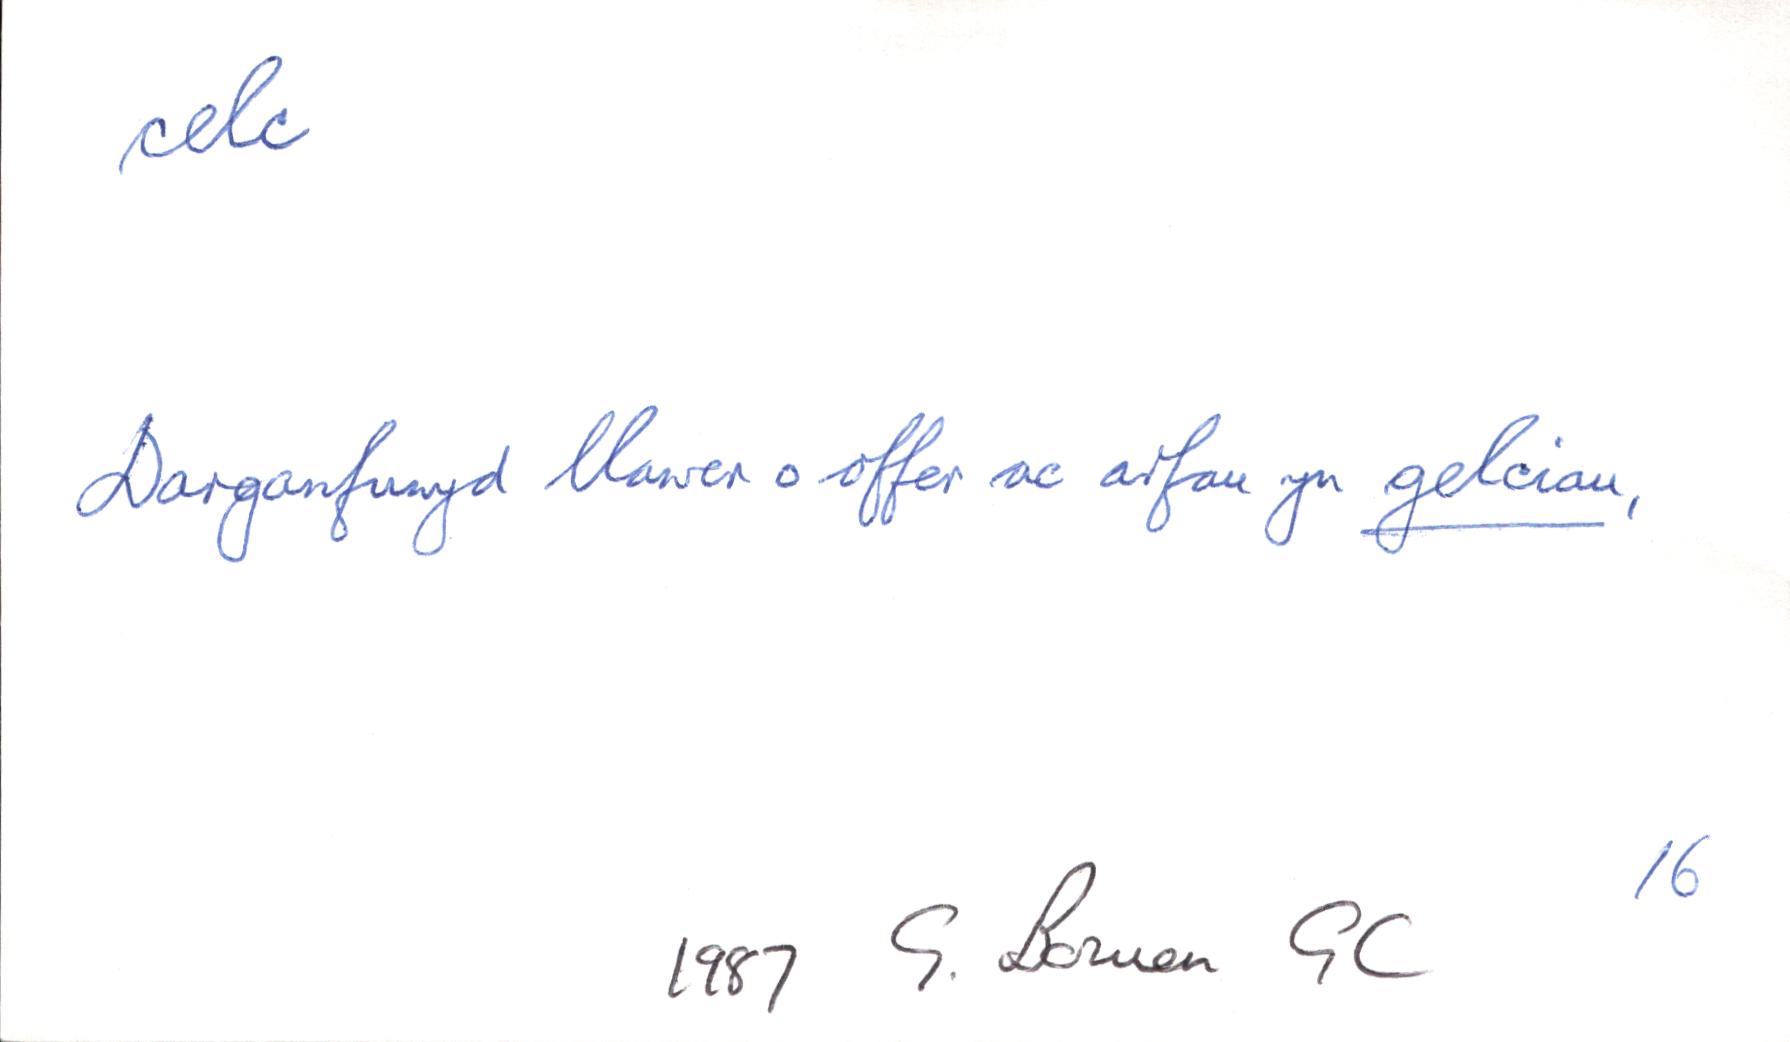 celc
Darganfuwyd llawer o offer ac arfau yn gelciau,
16
1987 G. Bowen GC